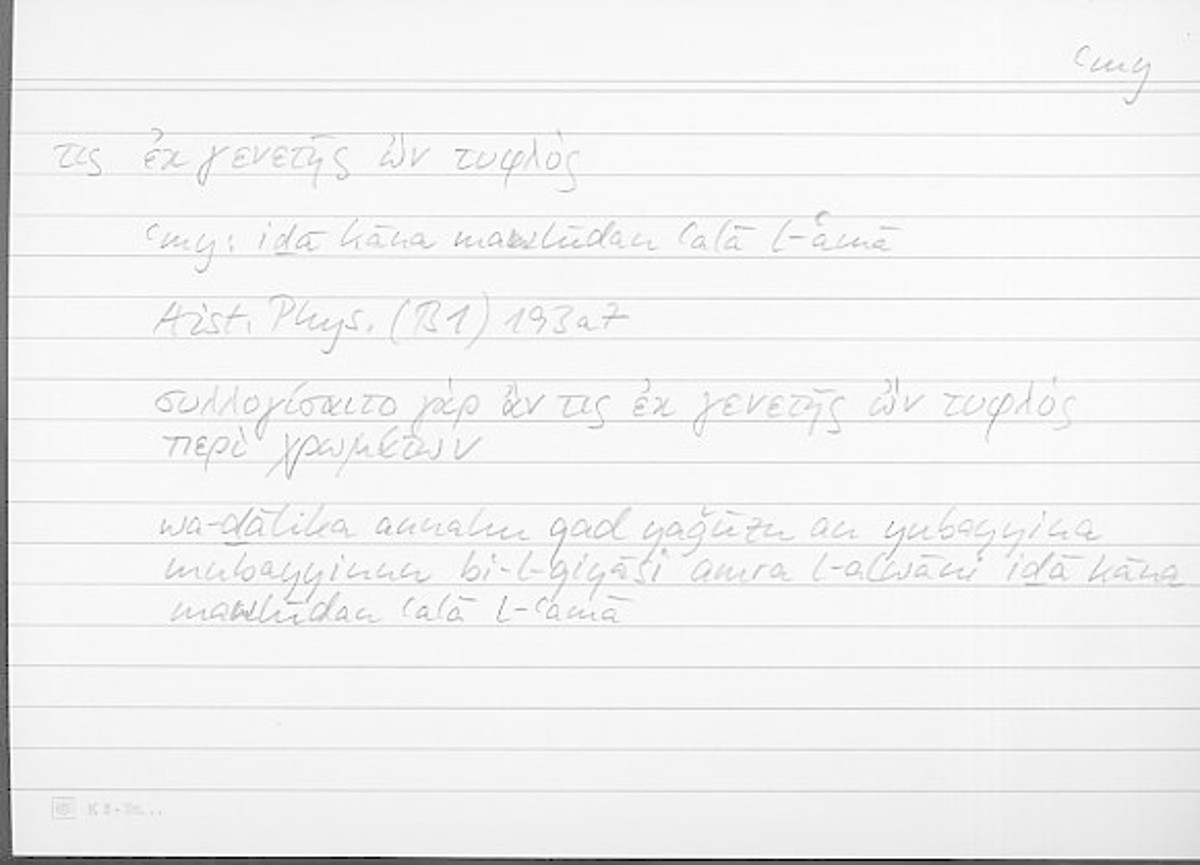 ʿmy
τις ἐκ γενετῆς ὢν τυφλός
ʿmy: iḏā kāna mawlūdan ʿalā l-ʿamā
Arist. Phys. (B1) 193a7
συλλογίσαιτο γὰρ ἄν τις ἐκ γενετῆς ὢν τυφλός
περὶ χρωμάτων
wa-ḏālika annahu qad yaǧūzu an yubayyina
mubayyinun bi-l-qiyāsi amra l-alwāni iḏā kāna
mawlūdan ʿalā l-ʿamā